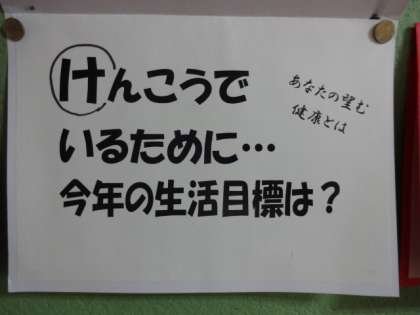 けんこうで
いるために…
今年の生活目標は？
あなたの望む
健康とは